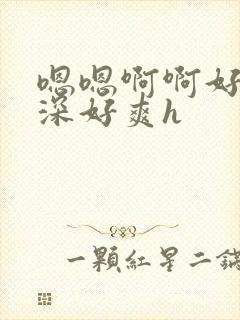 嗯嗯啊啊好
深好爽h
一顆紅星二鍋